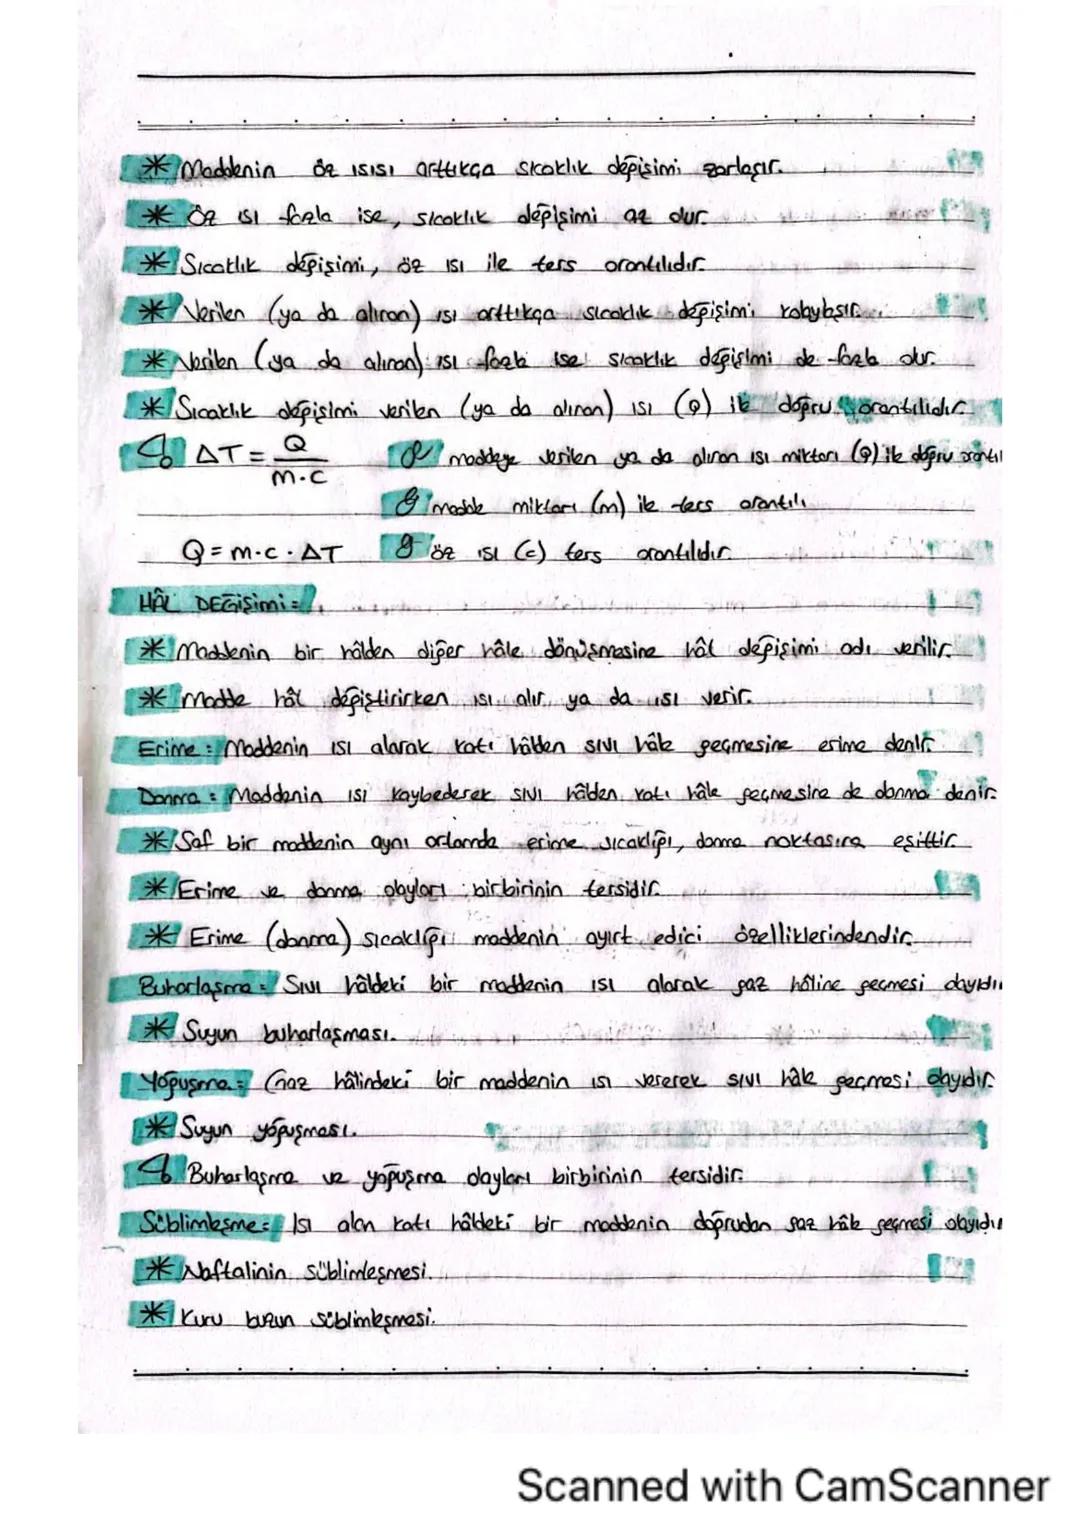 * Maddenin öz ısısı arttıkça sıcaklık değişimi zorlaşır.
* Öz ısı fazla ise, sıcaklık değişimi az olur.
* Sıcaklık değişimi, öz ısı ile ters orantılıdır.
* Verilen (ya da alınan) ısı arttıkça sıcaklık değişimi kolaylaşır.
* Verilen (ya da alınan) ısı fazla ise sıcaklık değişimi de fazla olur.
* Sıcaklık değişimi verilen (ya da alınan) ısı (Q) ile doğru orantılıdır.
ΔT = Q / m.c maddeye verilen ya da alınan ısı miktarı (Q) ile doğru orantıl
madde miktarı (m) ile ters orantılı
Q = m.c.ΔT öz ısı (c) ters orantılıdır.
HÂL DEĞİŞİMİ =
* Maddenin bir hâlden diğer hâle dönüşmesine hâl değişimi adı verilir.
* Madde hâl değiştirirken ısı alır ya da ısı verir.
Erime : Maddenin ısı alarak katı hâlden sıvı hâle geçmesine erime denir.
Donma : Maddenin ısı kaybederek sıvı hâlden katı hâle geçmesine de donma denir.
* Saf bir maddenin aynı ortamda erime sıcaklığı, donma noktasına eşittir.
* Erime ve donma olayları birbirinin tersidir.
* Erime (donma) sıcaklığı maddenin ayırt edici özelliklerindendir.
Buharlaşma = Sıvı hâldeki bir maddenin ısı alarak gaz hâline geçmesi olayıdır
* Suyun buharlaşması.
Yoğuşma = Gaz hâlindeki bir maddenin ısı vererek sıvı hâle geçmesi olayıdır.
* Suyun yoğuşması.
Buharlaşma ve yoğuşma olayları birbirinin tersidir.
Süblimleşme = Isı alan katı hâldeki bir maddenin doğrudan gaz hâle geçmesi olayıdır
* Naftalinin süblimleşmesi.
* Kuru buzun süblimleşmesi.
Scanned with CamScanner